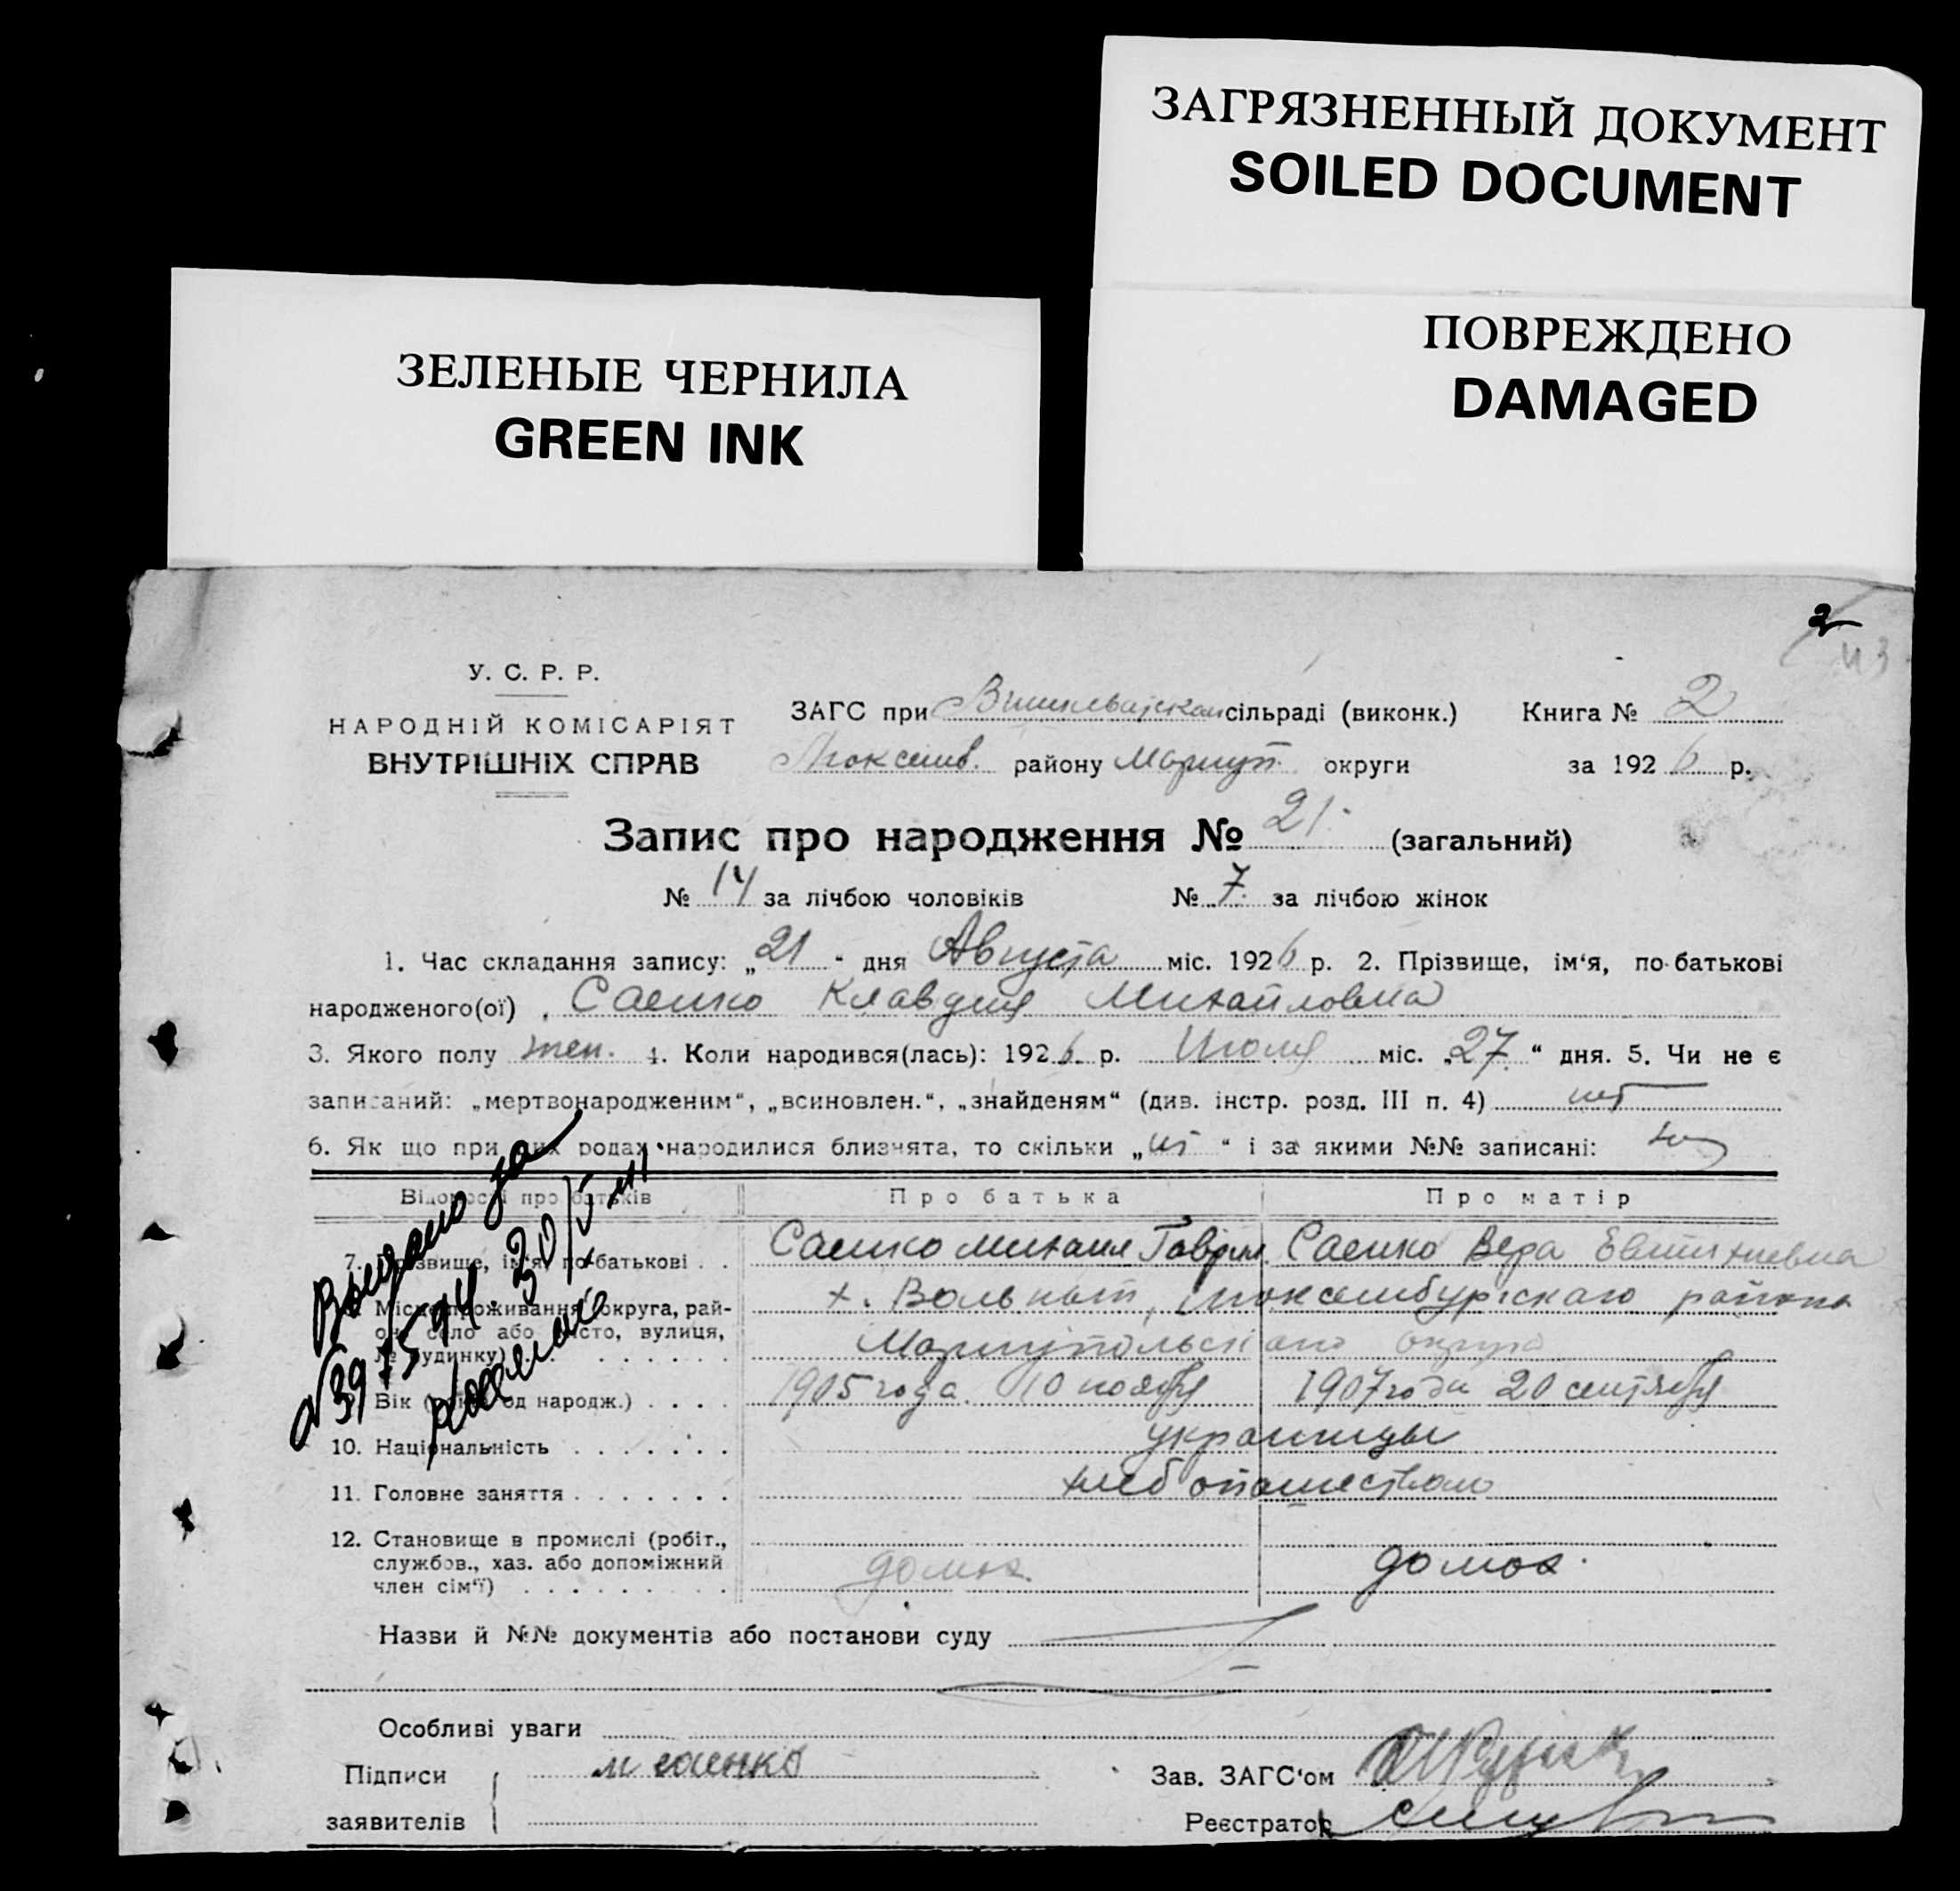 ЗАГРЯЗНЕННЫЙ ДОКУМЕНТ
SOILED DOCUMENT
ПОВРЕЖДЕНО
DAMAGED
ЗЕЛЕНЫЕ ЧЕРНИЛА
GREEN INK
2
43
У. С. Р. Р.
НАРОДНІЙ КОМІСАРІЯТ
ВНУТРІШНІХ СПРАВ
ЗАГС при сільраді (виконк.) Книга № 2
району Мариуп. округи за 1926 р.
Запис про народження № 21. (загальний)
№ 14 за лічбою чоловіків № 7. за лічбою жінок
1. Час складання запису: „21“ дня Августа міс. 1926 р. 2. Прізвище, ім'я, по-батькові
народженого(ої) Саенко Клавдия Михайловна
3. Якого полу жен. 4. Коли народився(лась): 1926 р. Июля міс. „27“ дня. 5. Чи не є
записаний: „мертвонародженим“, „всиновлен.“, „знайденям“ (див. інстр. розд. III п. 4) нет
6. Як що при цих родах народилися близнята, то скільки „нет“ і за якими №№ записані:
Відомості про батьків Про батька Про матір
7. Прізвище, ім'я, по-батькові . . Саенко Михаил Гаврил. Саенко Вера Евтихиевна
Місце проживання (округа, рай- х. Вольный, Люксембургскаго района
он, село або місто, вулиця,
№ будинку) . . . . . . . Мариупольскаго округа
Вік (рік од народж.) . . . . 1905 года. 10 ноября 1907 года 20 сентября
10. Національність . . . . . . . украинцы
11. Головне заняття . . . . . . . хлебопашеством
12. Становище в промислі (робіт.,
службов., хаз. або допоміжний
член сім'ї) . . . . . . . . домох. домох.
Назви й №№ документів або постанови суду
Особливі уваги
Підписи м саенко Зав. ЗАГС'ом
заявителів Реєстратор
Выдано за